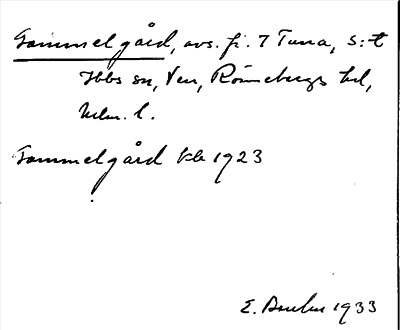 Gammelgård, avs. fr. 7 Tuna, S:t
Ibbs sn, Ven, Rönnebergs hd,
Mlm. l.
Gammelgård kb 1923
E. 1933